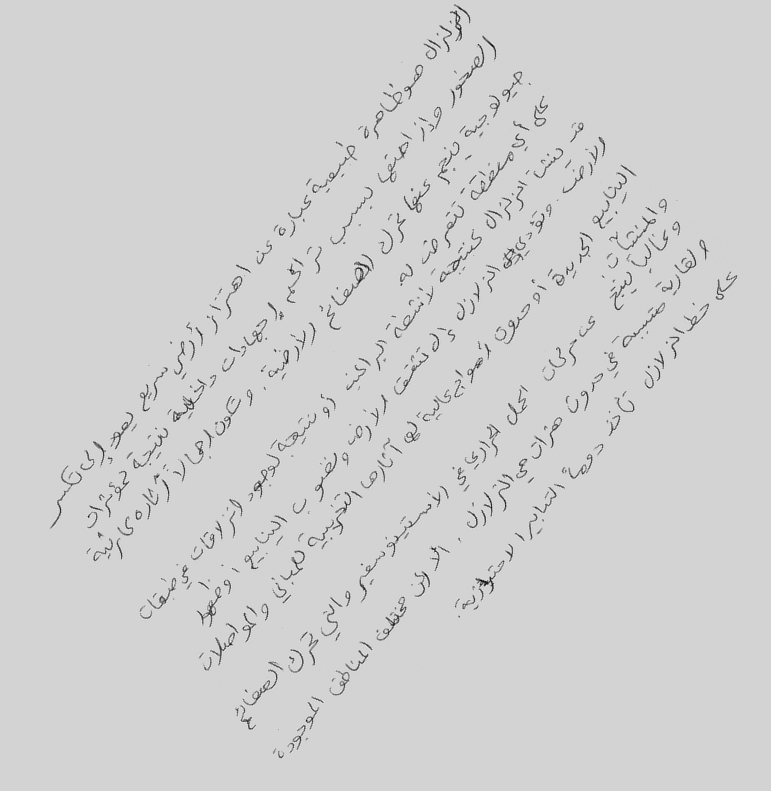 الزلزال هو ظاهرة طبيعية عبارة عن اهتزاز أرضي سريع يعود إلى تكسر
الصخور وإزاحتها بسبب تراكم إجهادات داخلية نتيجة لمؤثرات
جيولوجية ينجم عنها تحرك الصفائح الأرضية. وتكون إجمالاً آثاره كارثية
على أي منطقة تتعرض له.
قد ينشأ الزلزال كنتيجة لأنشطة البراكين أو نتيجة لوجود انزلاقات في طبقات
الأرض. وتؤدي الزلازل إلى تشقق الأرض ونضوب الينابيع أو ظهور
الينابيع الجديدة أو حدوث أمواج عالية لها آثارها التخريبية للمباني والمواصلات
والمنشآت.
وغالباً ينتج عن حركات الحمل الحراري في الأستينوسفير والتي تحرك الصفائح
القارية متسببة في حدوث هزات هي الزلازل. الأماكن مختلف المناطق الموجودة
على خط الزلازل تأخذ دوماً التدابير الاحترازية.